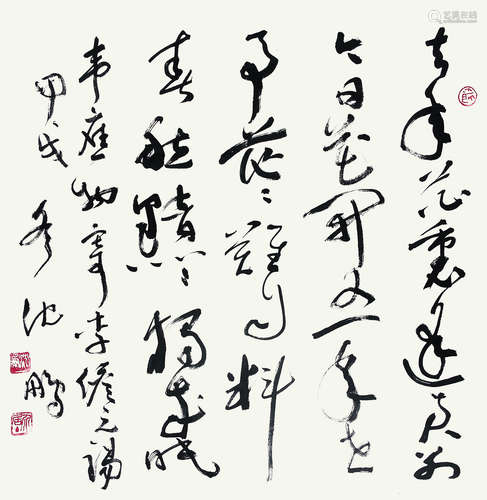 去年花里逢君别
今日花开又一年世
事茫茫难自料
春愁黯黯独成眠
韦应物寄李儋元锡
甲戌冬沈鹏